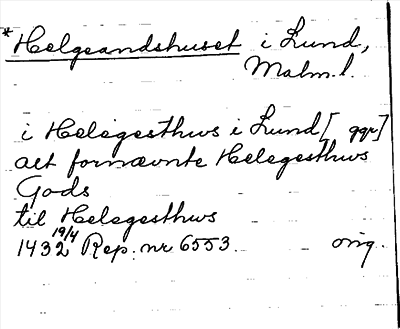 *Helgeandshuset i Lund,
Malm.l.
i Helegesthws i Lund [ ggr]
alt fornævnte Helegesthws
Gods
til Helegesthws
1432 19/4 Rep. nr 6553. orig.